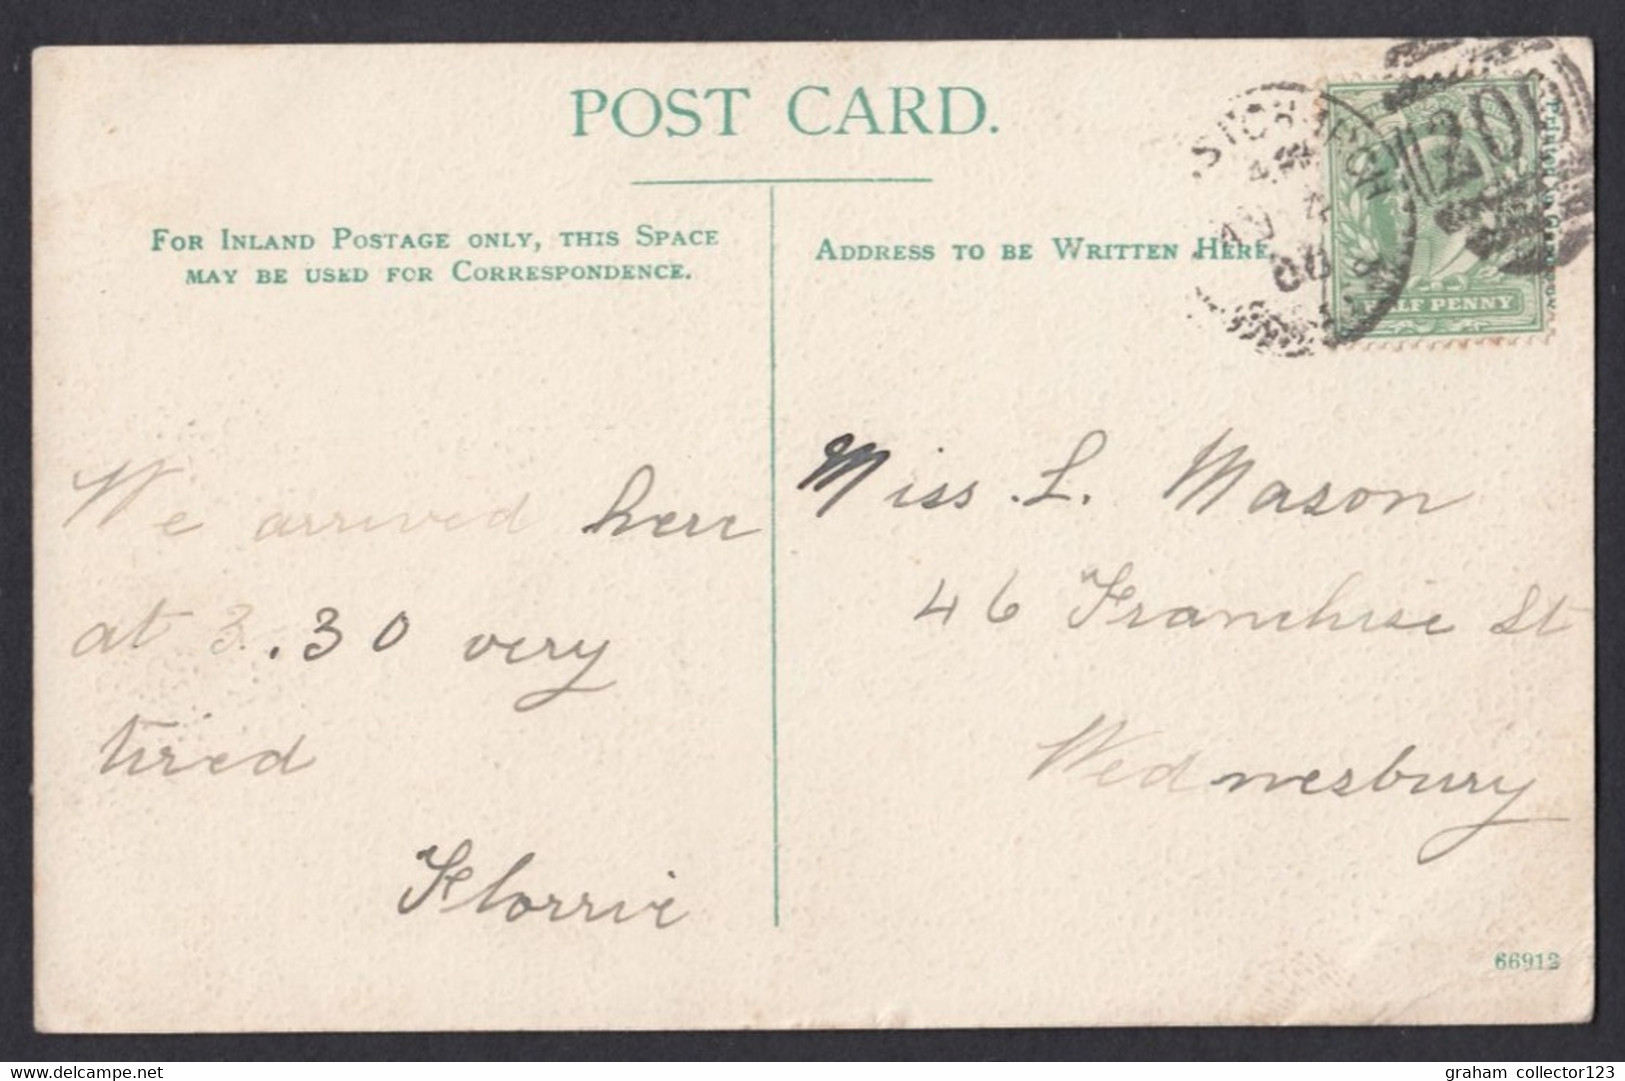 POST CARD.
FOR INLAND POSTAGE ONLY, THIS SPACE
MAY BE USED FOR CORRESPONDENCE.
ADDRESS TO BE WRITTEN HERE
201
HALF PENNY
We arrived here
at 3.30 very
tired
Florrie
Miss L. Mason
46 Franchise St
Wednesbury
66912
graham collector123